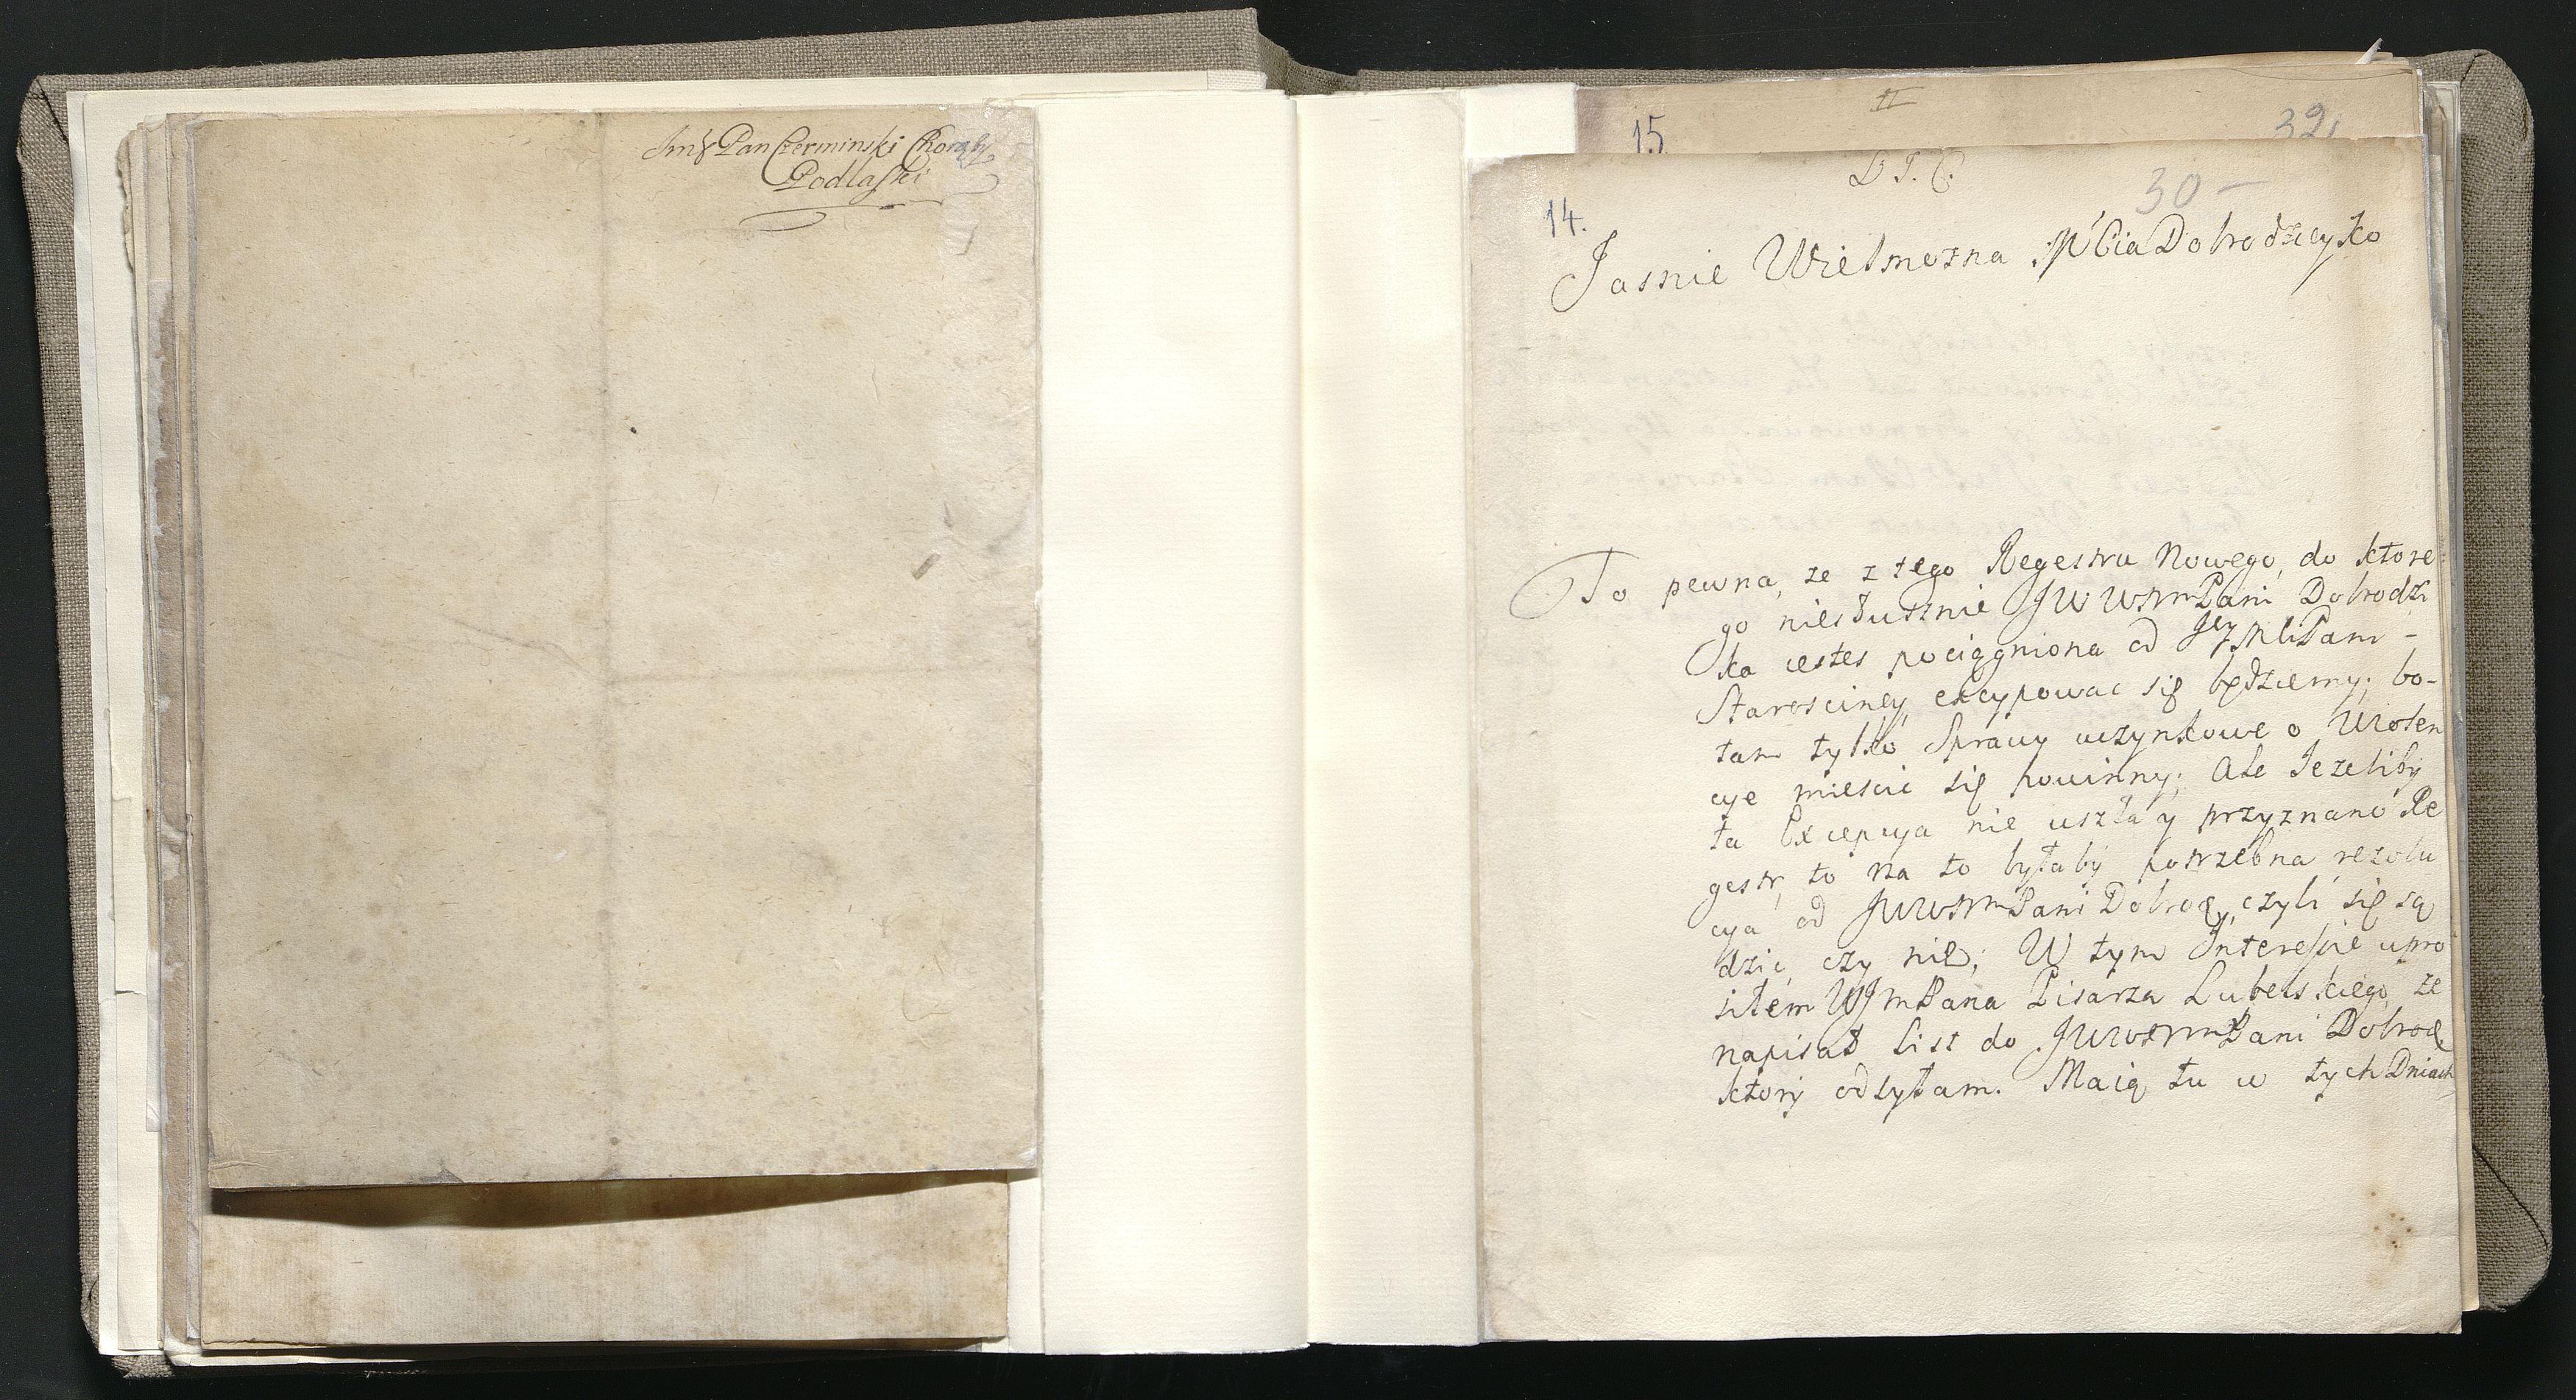 Jmć Pan Czerminski Chorąży
Podlaski
15
32
D T. C.
30 –
14.
Jasnie Wielmozna Mćia Dobrodzieyko
To pewna, ze z tego Regestru Nowego, do ktore
go niesłusznie JW WMPani Dobrodzi
ka iestes pociągniona od Jey Mci Pani –
Starosciney excypowac się będziemy; bo-
tam tylko Sprawy uczynkowe o Wiolen
cye miescic się powinny; Ale Jezeliby
ta Excepcya nie uszła y przyznano Re
gestr, to na to byłaby potrzebna rezolu
cya od JWWMPani Dobrodz, czyli się są
dzic, czy nie; W tym Interessie upro
siłem WJmPana Pisarza Lubelskiego, ze
napisał List do JWWMPani Dobrodz
ktory odsyłam. Maią tu w tych Dniach